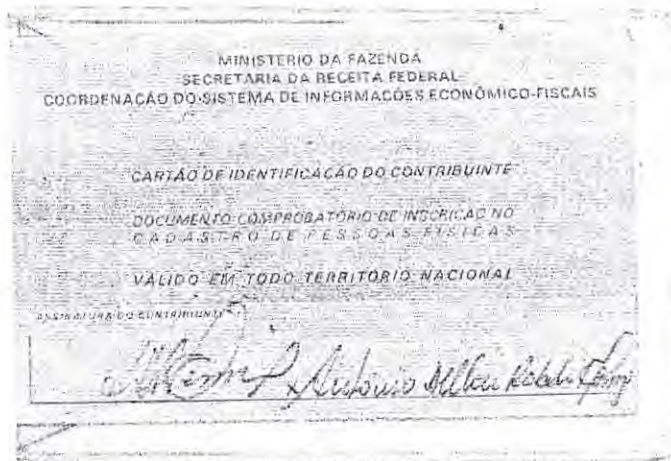 MINISTÉRIO DA FAZENDA
SECRETARIA DA RECEITA FEDERAL
COORDENAÇÃO DO SISTEMA DE INFORMAÇÕES ECONÔMICO-FISCAIS
CARTÃO DE IDENTIFICAÇÃO DO CONTRIBUINTE
DOCUMENTO COMPROBATÓRIO DE INSCRIÇÃO NO
CADASTRO DE PESSOAS FÍSICAS
VÁLIDO EM TODO TERRITÓRIO NACIONAL
ASSINATURA DO CONTRIBUINTE
Antonio